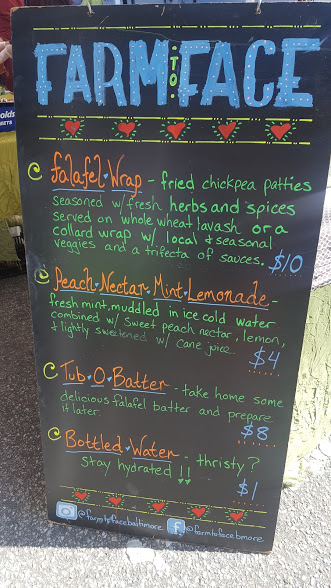 FARM
TO
FACE
Falafel Wrap - fried chickpea patties
seasoned w/ fresh herbs and spices
served on whole wheat lavash or a
collard wrap w/ local & seasonal
veggies and a trifecta of sauces. $10
Peach Nectar Mint Lemonade -
fresh mint, muddled in ice cold water
combined w/ sweet peach nectar, lemon,
& lightly sweetened w/ cane juice.
$4
Tub O Batter - take home some
delicious falafel batter and prepare
it later
$8
Bottled Water - thristy?
Stay hydrated!!
$1
@farmtofacebaltimore
f @farmtofacebmore